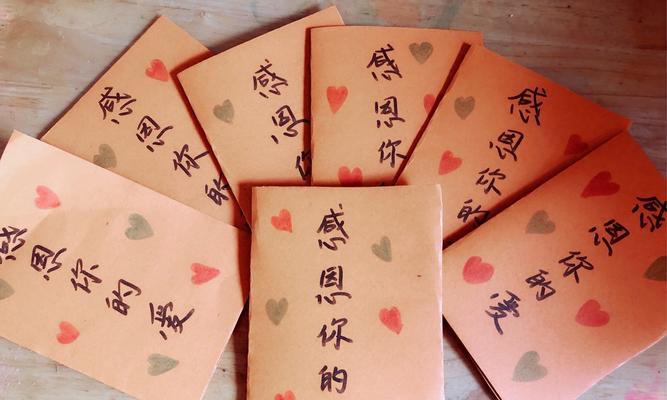 感恩你的
感恩
感恩你
感恩你的
感恩你的爱
感恩你的
感恩你的爱